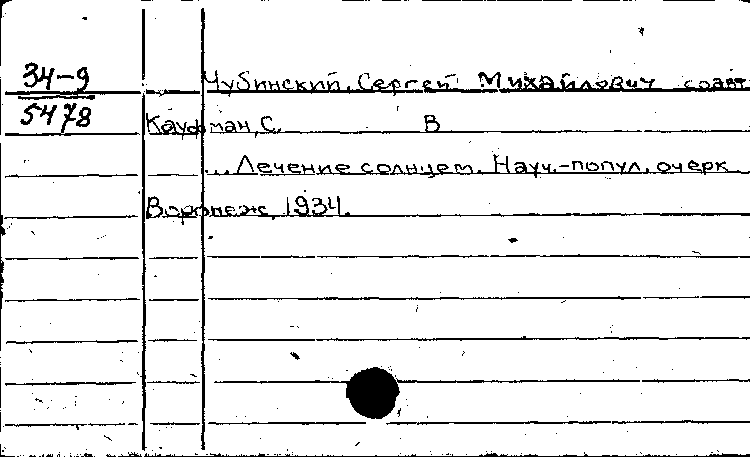 34-9 Чубинский, Сергей Михайлович соавт
5478 Кауфман, С. В
... Лечение солнцем. Науч.-попул. очерк
Воронеж, 1934.